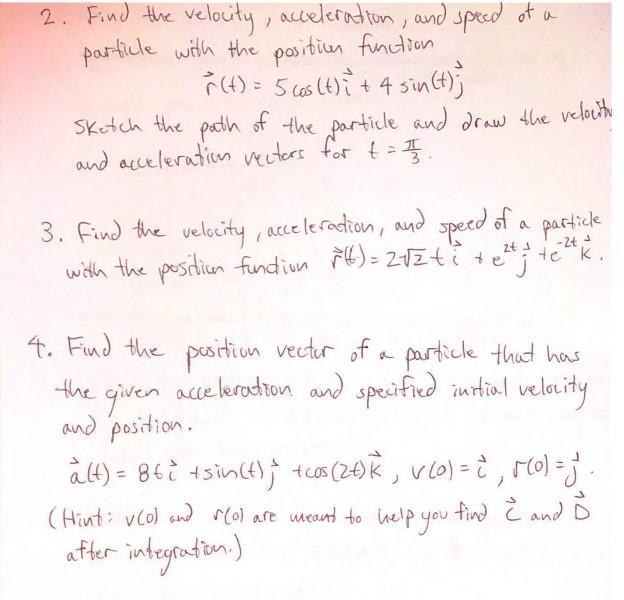 2. Find the velocity, acceleration, and speed of a
particle with the position function
r⃗(t) = 5 cos(t) i⃗ + 4 sin(t) j⃗
Sketch the path of the particle and draw the velocity
and acceleration vectors for t = π/3.
3. Find the velocity, acceleration, and speed of a particle
with the position function r⃗(t) = 2√2 t i⃗ + e^{2t} j⃗ + e^{-2t} k⃗.
4. Find the position vector of a particle that has
the given acceleration and specified initial velocity
and position.
a⃗(t) = 8t i⃗ + sin(t) j⃗ + cos(2t) k⃗, v(0) = i⃗, r(0) = j⃗.
(Hint: v(0) and r(0) are meant to help you find C⃗ and D⃗
after integration.)